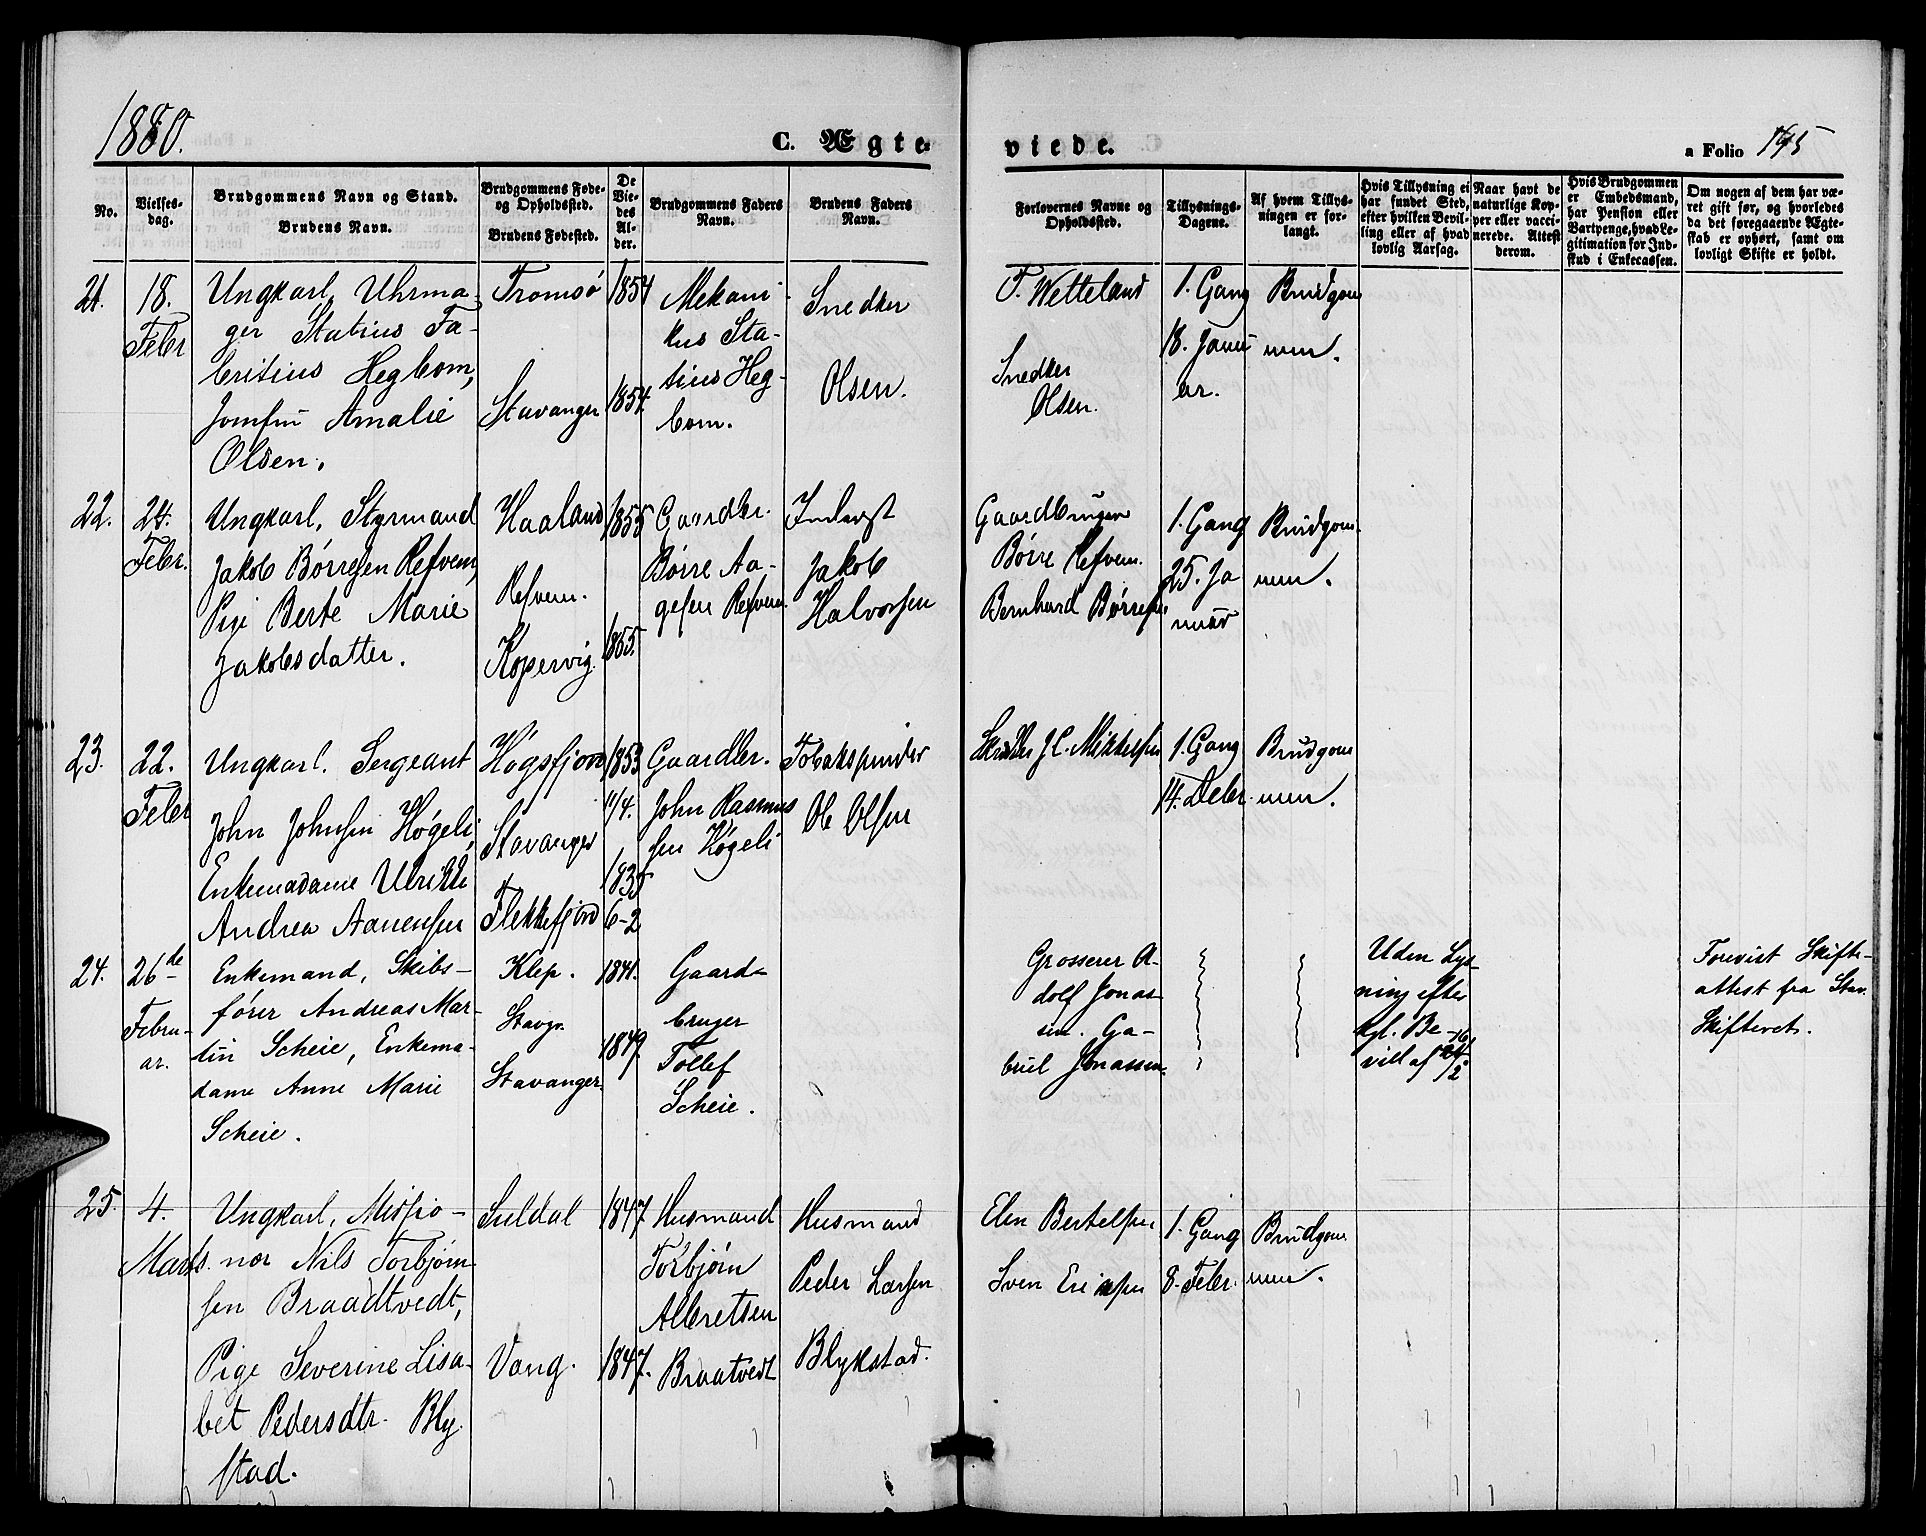 1880.
C. Ægte
viede.
a Folio 195
No.
Vielses-
dag.
Brudgommens Navn og Stand.
Brudens Navn.
Brudgommens Føde-
og Opholdssted.
Brudens Fødested.
De
Vie-
des
Al-
der.
Brudgommens Faders
Navn.
Brudens Faders
Navn.
Forlovernes Navne og
Opholdssted.
Tillysnings-
Dagene.
Af hvem Tillys-
ningen er for-
langt.
Hvis Tillysning ei
har fundet Sted,
efter hvilken Bevil-
ling eller af hvad
lovlig Aarsag.
Naar havt de
naturlige Kop-
per eller vacci-
nerede. Attest
derom.
Hvis Brudgommen
er Embedsmand,
har Pension eller
Vartpenge, hvad Le-
gitimation for Ind-
skud i Enkecassen.
Om nogen af dem har væ-
ret gift før, og hvorledes
da det foregaaende Ægte-
skab er ophørt, samt om
lovligt Skifte er holdt.
21.
18.
Febr
Ungkarl, Uhrma-
ger Statius Fa-
britius Hegbom,
Jomfru Amalie
Olsen.
Tromsø
Stavanger
1854
1854.
Mekani-
kus Sta-
tius Heg-
bom.
Snedker
Olsen.
T. Wetteland
Snedker
Olsen.
1. Gang
18. Janu
ar.
Brudgom
men.
22.
24.
Febr.
Ungkarl, Styrmand
Jakob Børresen Refvem,
Pige Berte Marie
Jakobsdatter.
Haaland
Refvem.
Kopervig.
1855
1855.
Gaardbr.
Børre Aa-
gesen Refvem.
Inderst
Jakob
Halvorsen
Gaardbruger
Børre Refvem.
Bernhard Børresen
1. Gang
25. Ja
nuar
Brudgom-
men.
23.
22.
Febr
Ungkarl. Sergeant
John Johnsen Høgeli,
Enkemadame Ulrikke
Andrea Aanensen
Høgsfjord
Stavanger
Flekkefjord
1853
11/4.
1835
6-2
Gaardbr.
John Rasmus
sen Høgeli
Tobakspinder
Ole Olsen
Skrædder J. C. Mikkelsen
1. Gang
14. Debr.
Brudgom
men.
24.
26de
Febru-
ar.
Enkemand, Skibs-
fører Andreas Mar-
tin Scheie, Enkema-
dame Anne Marie
Scheie.
Klep.
Stavgr.
Stavanger.
1841.
1849.
Gaard-
bruger
Tollef
Scheie.
Grosserer A-
dolf Jonas-
sen. Ga-
briel Jonassen.
Uden Lys-
ning efter
kgl. Be-
vill af
Forevist Skifte-
attest fra Stav.
Skifteret.
25.
4.
Marts.
Ungkarl, Missio-
nær Nils Torbjørn-
sen Braadtvedt,
Pige Severine Lisa-
bet Pedersdtr. Bly-
stad.
Suldal
Vang.
1847.
1847.
Husmand
Torbjørn
Albretsen
Braatvedt
Husmand
Peder Larsen
Blykstad.
Elen Bertelsen
Sven Eriksen
1. Gang
8. Febr.
Brudgom
men.